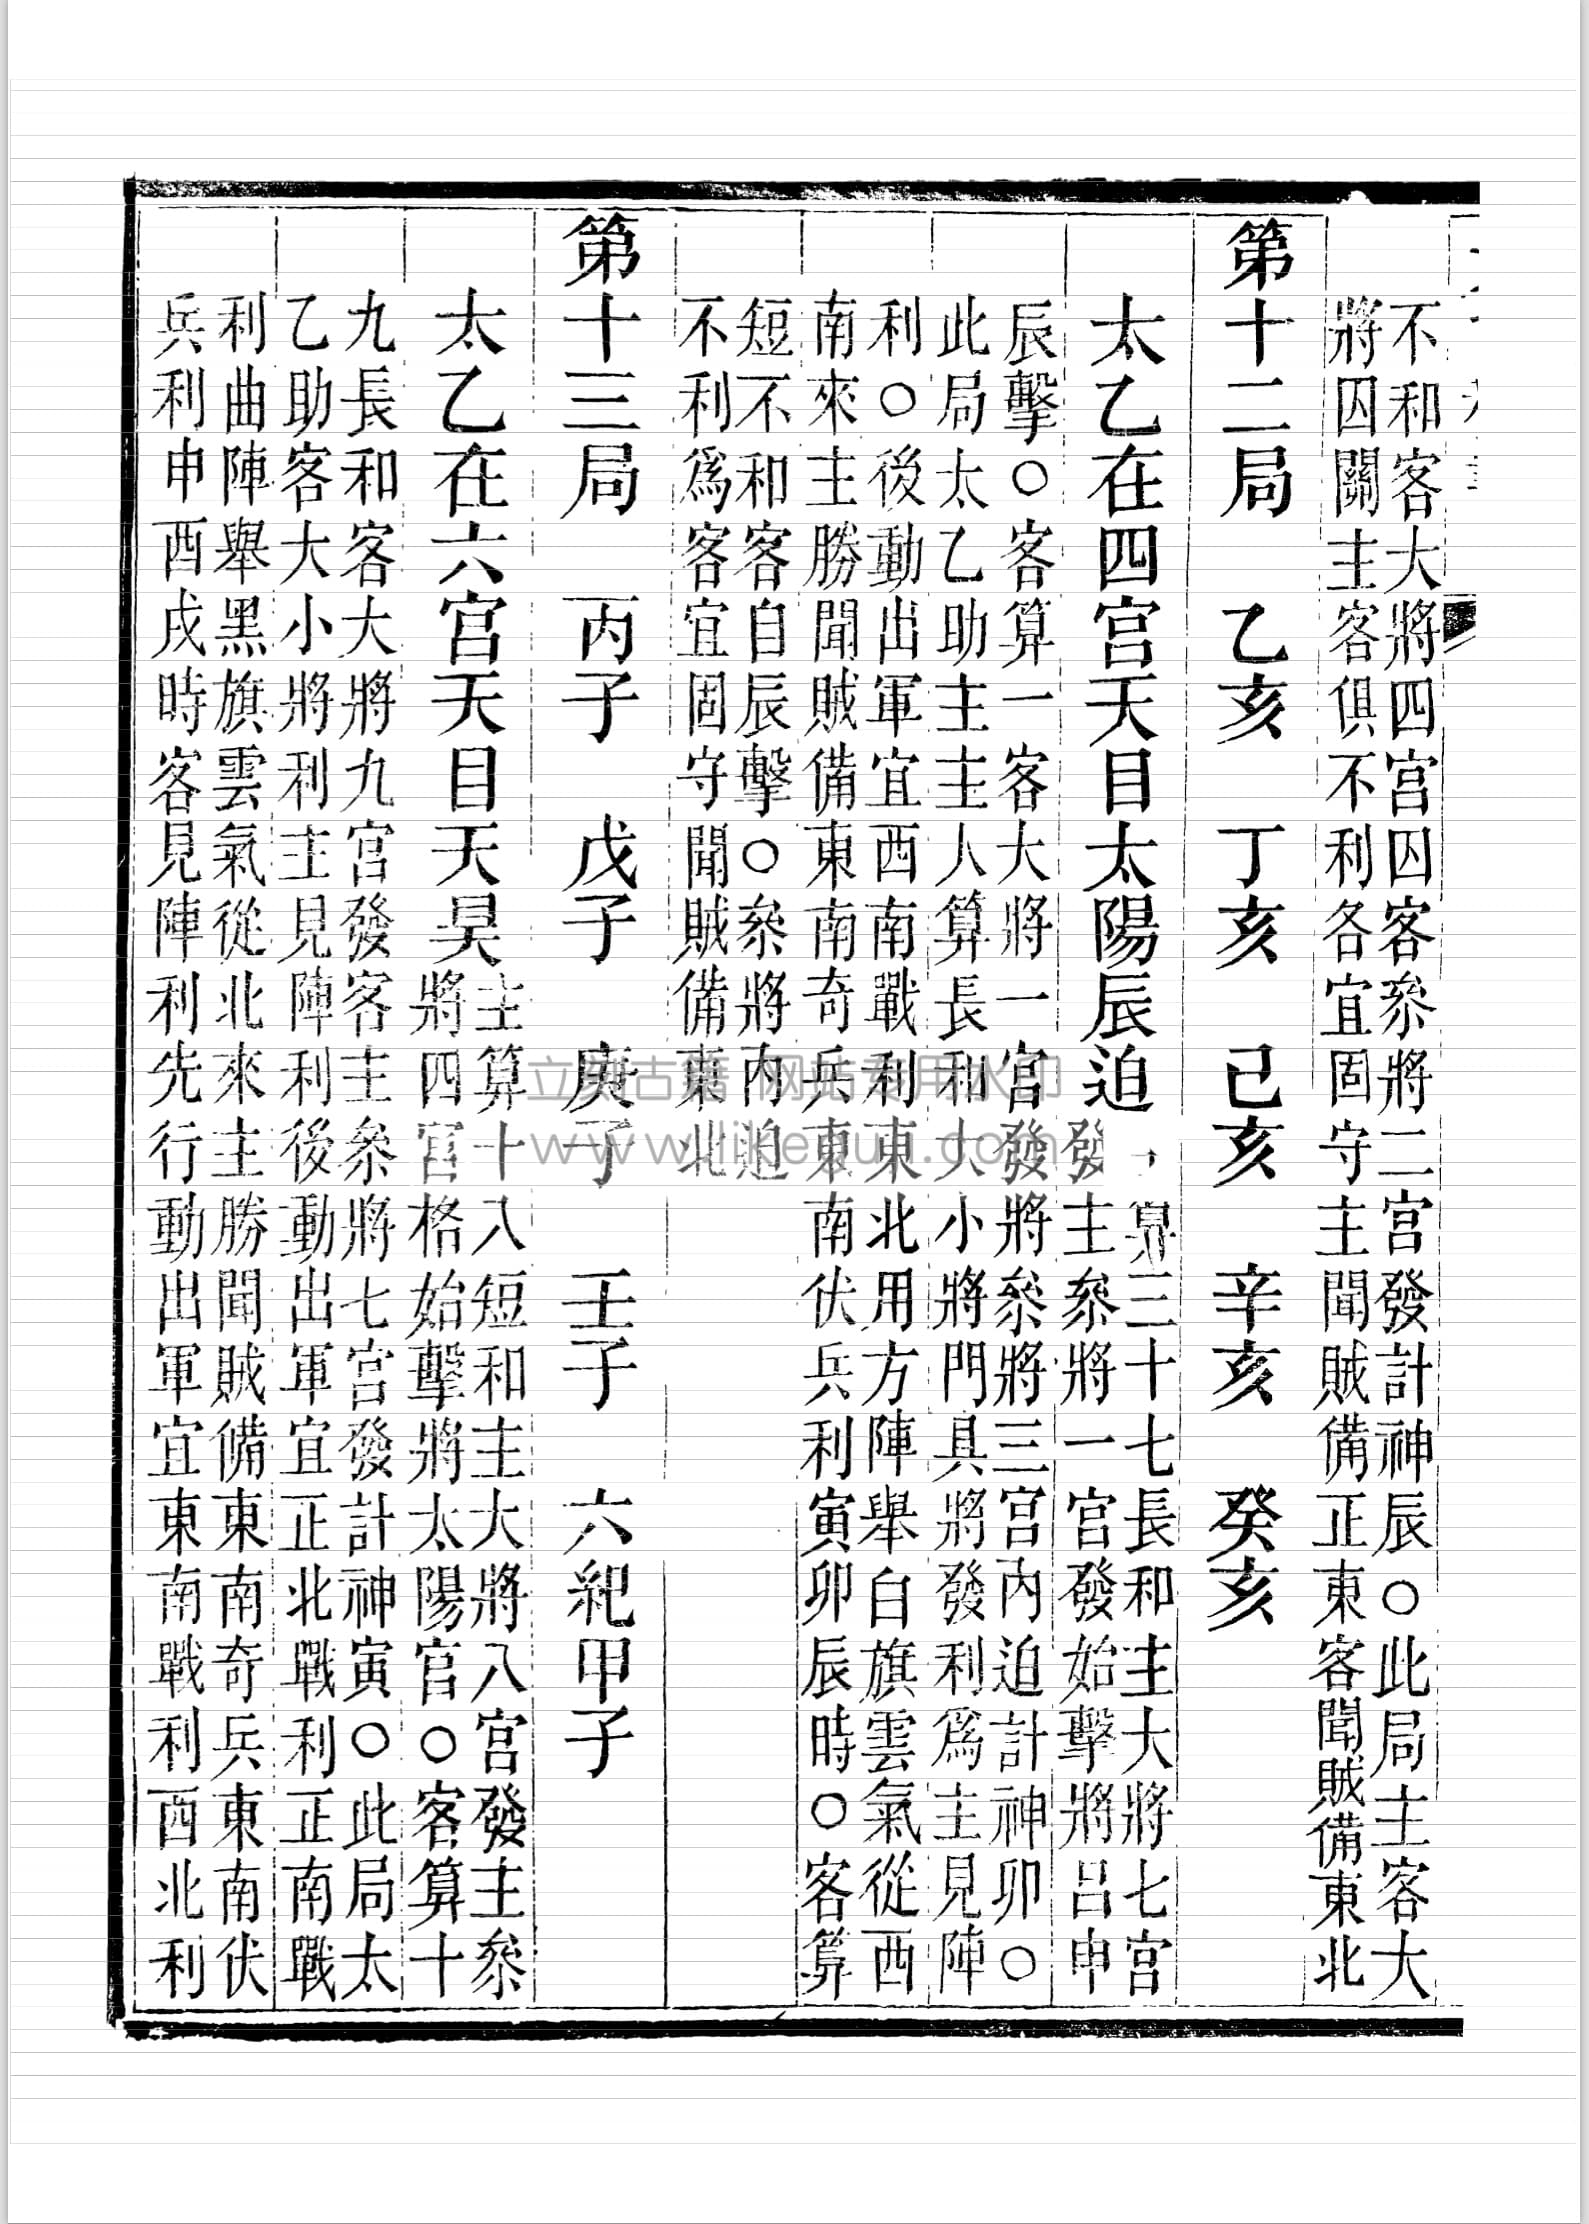 不和客大將四宮囚客叅將二宮發計神辰○此局主客大
將囚關主客俱不利各宜固守主聞賊備正東客聞賊備東北
第十二局 乙亥 丁亥 己亥 辛亥 癸亥
太乙在四宮天目太陽辰迫
算三十七長和主大將七宮
發主叅將一宮發始擊將呂申
辰擊○客算一客大將一宮發將叅將三宮內迫計神卯○
此局太乙助主主人算長和大小將門具將發利爲主見陣
利○後動出軍宜西南戰利東北用方陣舉白旗雲氣從西
南來主勝聞賊備東南奇兵東南伏兵利寅卯辰時○客算
短不和客自辰擊○叅將內迫
不利爲客宜固守聞賊備東北
第十三局 丙子 戊子 庚子 壬子 六紀甲子
太乙在六宮天目天昊
主算十八短和主大將八宮發主叅
將四宮格始擊將太陽官○客算十
九長和客大將九宮發客主叅將七宮發計神寅○此局太
乙助客大小將利主見陣利後動出軍宜正北戰利正南戰
利曲陣舉黑旗雲氣從北來主勝聞賊備東南奇兵東南伏
兵利申酉戌時客見陣利先行動出軍宜東南戰利西北利
立刻古籍 网站专用水印
www.likeguji.com